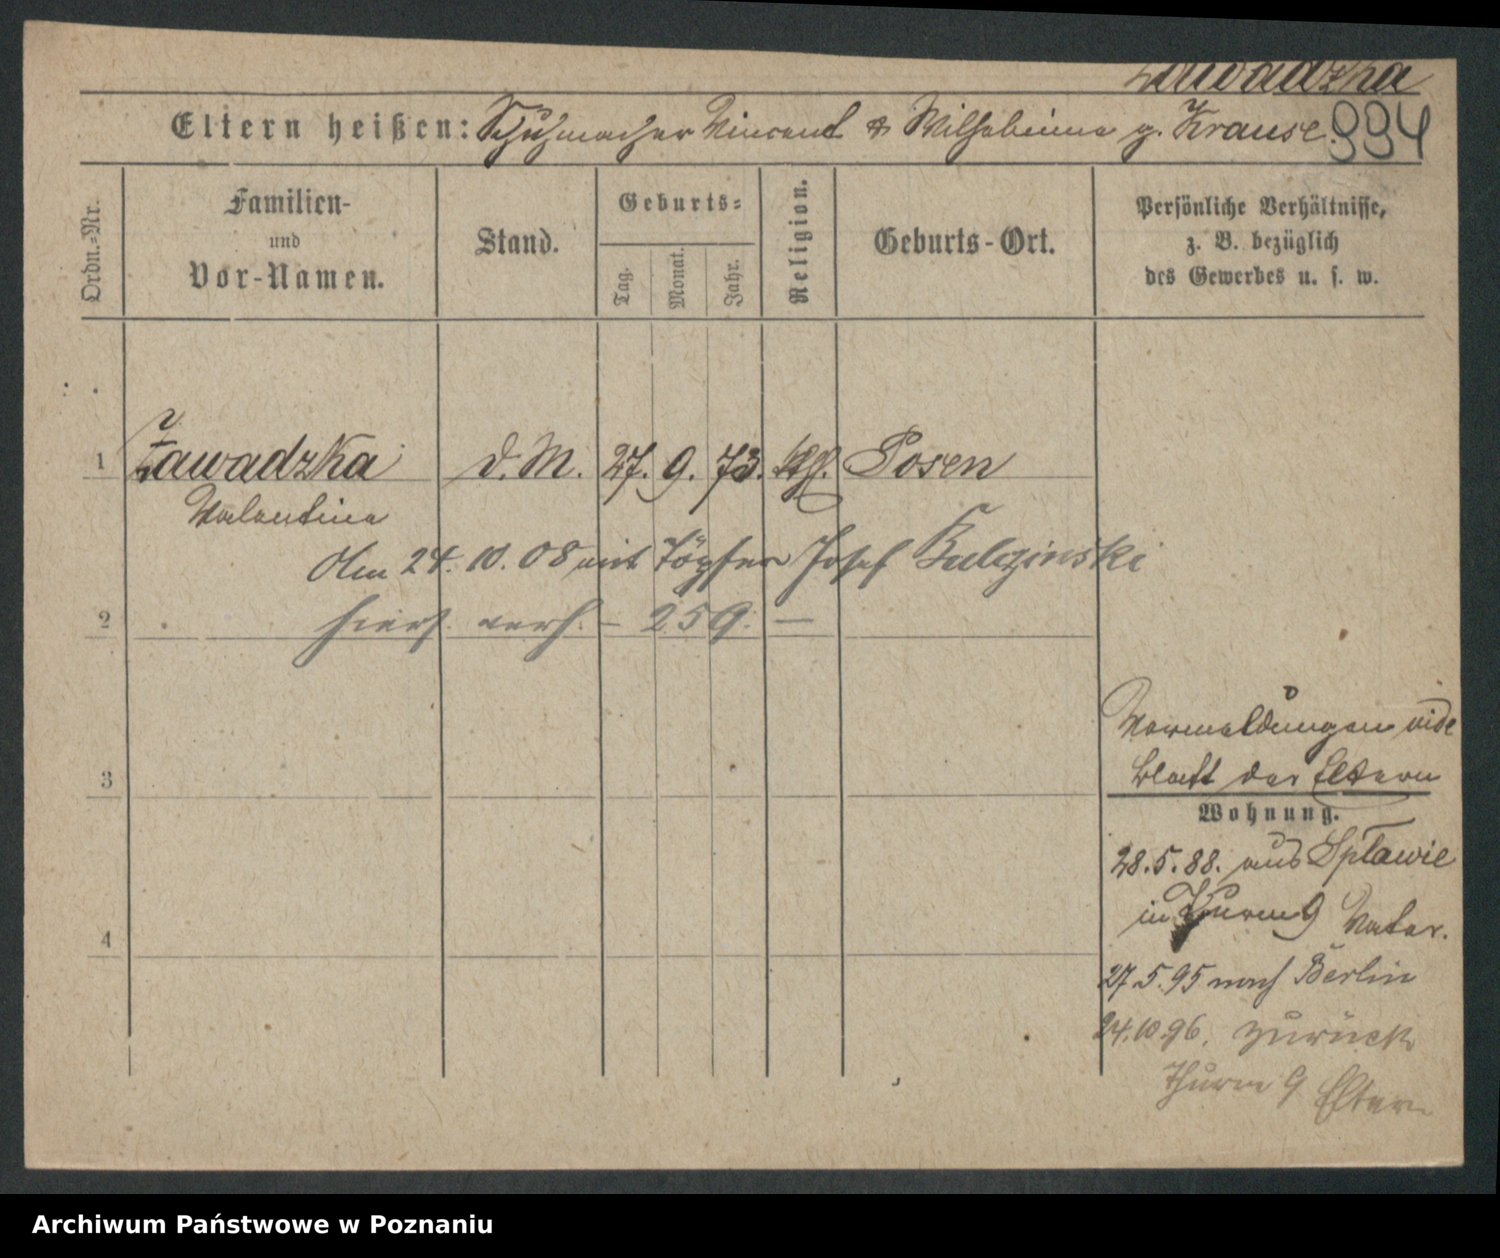 Zawadzka
Eltern heißen: Schuhmacher Vincent & Wilhelmine g. Krause.
994
Ordn.-Nr.
Familien-
und
Vor-Namen.
Stand.
Geburts-
Tag.
Monat.
Jahr.
Religion.
Geburts-Ort.
Persönliche Verhältnisse,
z. B. bezüglich
des Gewerbes u. s. w.
1 Zawadzka d. M. 27. 9. 73. kth. Posen
Valentine
Am 24. 10. 08 mit Töpfer Josef Kulczinski
2 hiers. verh. - 259. -
3
4
Vormeldungen vide
Blatt der Eltern
Wohnung.
28.5.88. aus Spławie
in Thurm 9 Vater.
27.5.95 nach Berlin
24.10.96. zurück
Thurm 9 Eltern
Archiwum Państwowe w Poznaniu